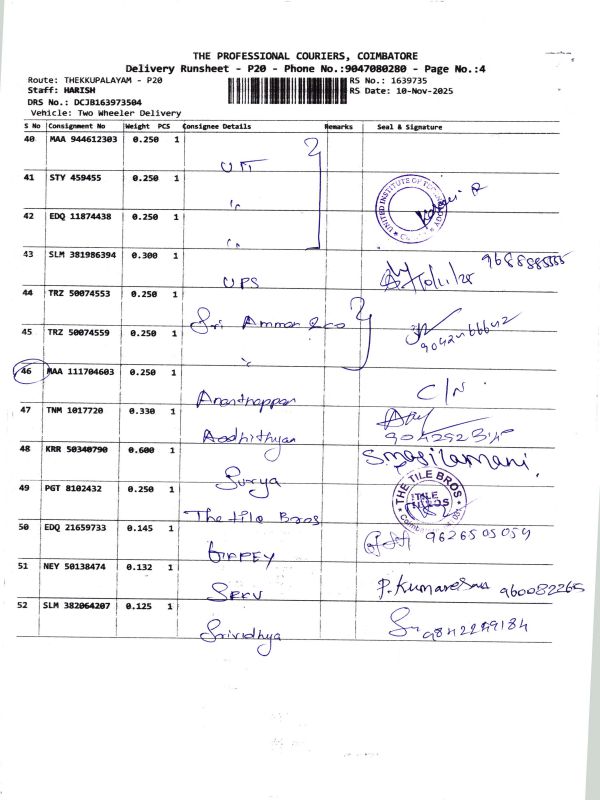 THE PROFESSIONAL COURIERS, COIMBATORE
Delivery Runsheet - P20 - Phone No.:9047080280 - Page No.:4
Route: THEKKUPALAYAM - P20 RS No.: 1639735
Staff: HARISH RS Date: 10-Nov-2025
DRS No.: DCJB163973504
Vehicle: Two Wheeler Delivery
S No Consignment No Weight PCS Consignee Details Remarks Seal & Signature
40 MAA 944612303 0.250 1
UIT
41 STY 459455 0.250 1
"
UNITED INSTITUTE OF TECHNOLOGY
42 EDQ 11874438 0.250 1
"
43 SLM 381986394 0.300 1
UPS 10/11/25 9688585555
44 TRZ 50074553 0.250 1
Sri Amman & co
45 TRZ 50074559 0.250 1
" 9042466642
46 MAA 111704603 0.250 1
Ananthappan C/N
47 TNM 1017720 0.330 1
Aadhithyan
48 KRR 50340790 0.600 1
Surya S.masilamani.
49 PGT 8102432 0.250 1
The tile Bros THE TILE BROS
50 EDQ 21659733 0.145 1
9626505054
51 NEY 50138474 0.132 1
P.Kumaresan 960082265
52 SLM 382064207 0.125 1
Srividhya 9842249184